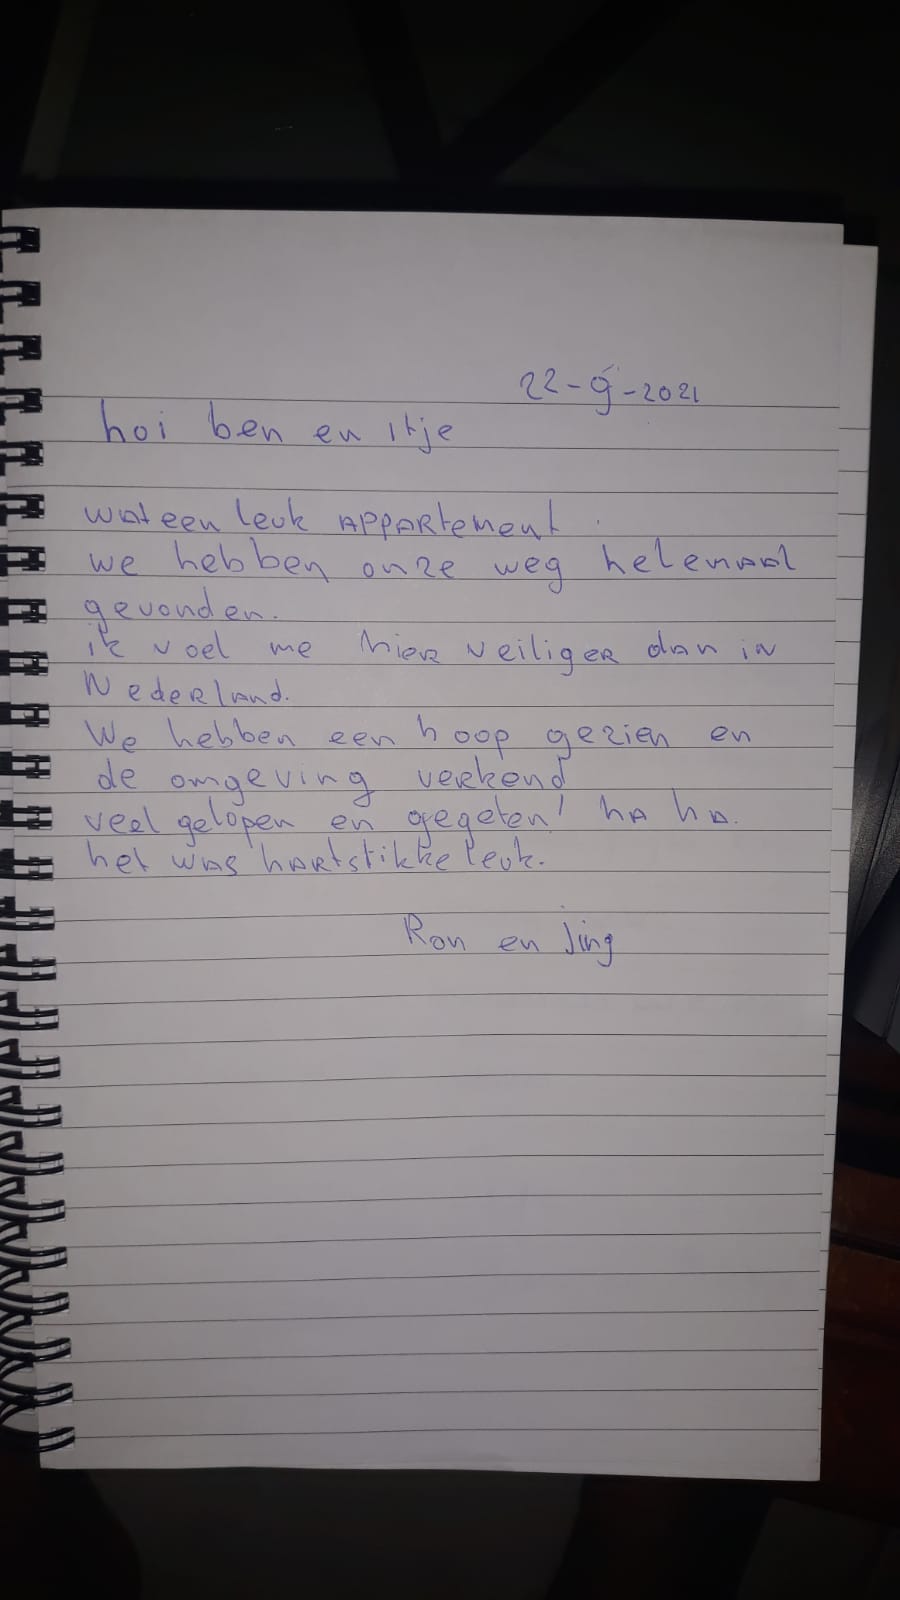 22-9-2021
hoi ben en Itje
wat een leuk APPARtement.
we hebben onze weg helemaal
gevonden.
ik voel me hier veiliger dan in
Nederland.
We hebben een hoop gezien en
de omgeving verkend
veel gelopen en gegeten! ha ha.
het was hartstikke leuk.
Ron en Jing